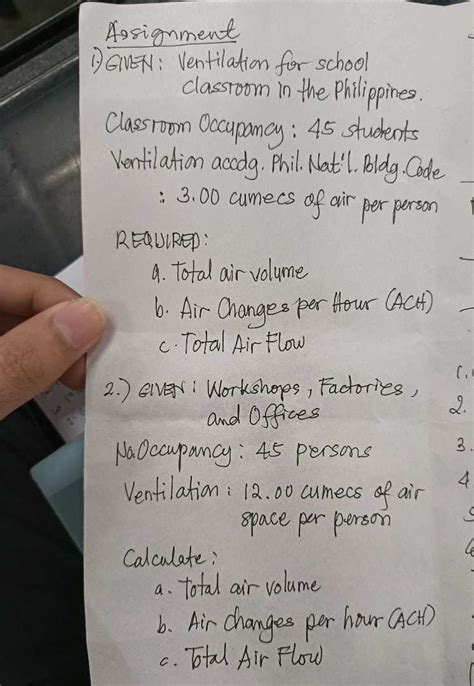 Assignment
1.) GIVEN: Ventilation for school
classroom in the Philippines.
Classroom Occupancy: 45 students
Ventilation accdg. Phil. Nat'l. bldg. Code
: 3.00 cumecs of air per person
REQUIRED:
a. Total air volume
b. Air Changes per Hour (ACH)
c. Total Air Flow
2.) GIVEN: Workshops, Factories,
and Offices
No. Occupancy: 45 persons
Ventilation: 12.00 cumecs of air
space per person
Calculate:
a. Total air volume
b. Air Changes per hour (ACH)
c. Total Air Flow
2.
3.
4